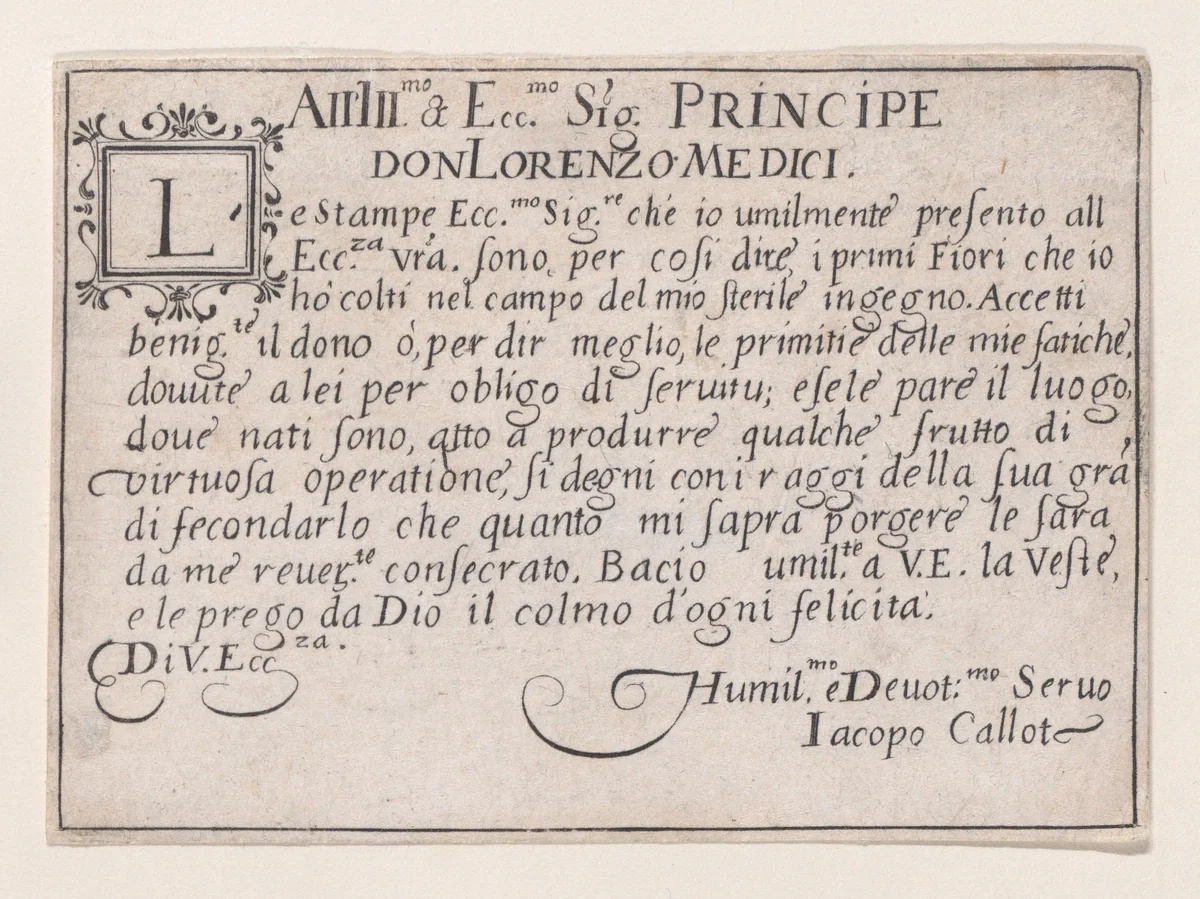 All Ill.mo & Ecc.mo Sig. PRINCIPE
DON LORENZO MEDICI.
Le Stampe Ecc.mo Sig.re che io umilmente preſento all
Ecc.za vrã. ſono, per coſi dire, i primi Fiori che io
hò colti nel campo del mio ſterile ingegno. Accetti
benig.te il dono ò, per dir meglio, le primitie delle mie fatiche,
douute a lei per obligo di ſeruitu; eſe le pare il luogo,
doue nati ſono, atto a produrre qualche frutto di ,
virtuoſa operatione, ſi degni con i raggi della ſua grã
di fecondarlo che quanto mi ſapra porgere le ſara
da me reuer.te conſecrato. Bacio umil.te a V.E. la Veſte,
e le prego da Dio il colmo d'ogni felicita.
Di V. Ecc.za.
Humil.mo e Deuot:mo Seruo
Iacopo Callot